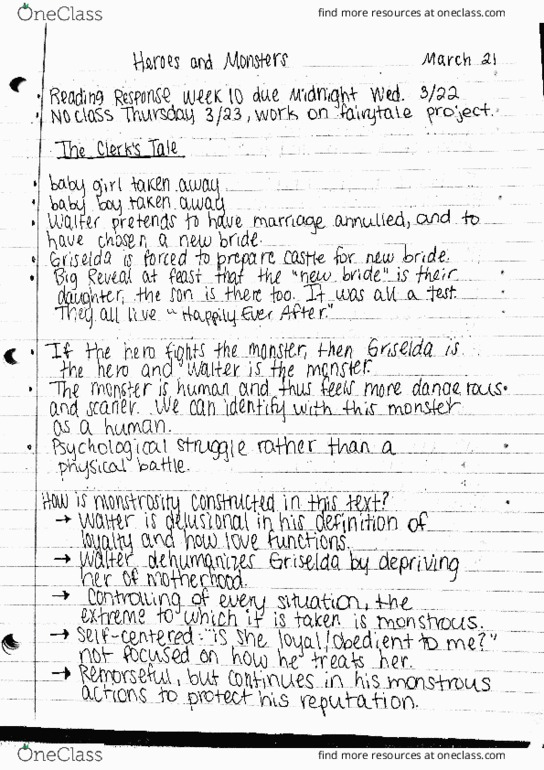 OneClass find more resources at oneclass.com
Heroes and Monsters March 21
• Reading Response week 10 due Midnight Wed. 3/22
• No class Thursday 3/23, work on fairytale project.
The Clerk's Tale
• baby girl taken away
• baby boy taken away
• Walter pretends to have marriage annulled, and to
have chosen a new bride.
• Griselda is forced to prepare castle for new bride.
• Big Reveal at feast that the "new bride" is their
daughter, the son is there too. It was all a test.
They all live "Happily Ever After."
• If the hero fights the monster, then Griselda is
the hero and Walter is the monster.
• The monster is human and thus feels more dangerous
and scarier. We can identify with this monster
as a human.
• Psychological struggle rather than a
physical battle.
How is monstrosity constructed in this text?
→ Walter is delusional in his definition of
loyalty and how love functions.
→ Walter dehumanizes Griselda by depriving
her of motherhood.
→ Controlling of every situation, the
extreme to which it is taken is monstrous.
→ Self-centered: "is she loyal/obedient to me?"
not focused on how he treats her.
→ Remorseful, but continues in his monstrous
actions to protect his reputation.
OneClass find more resources at oneclass.com